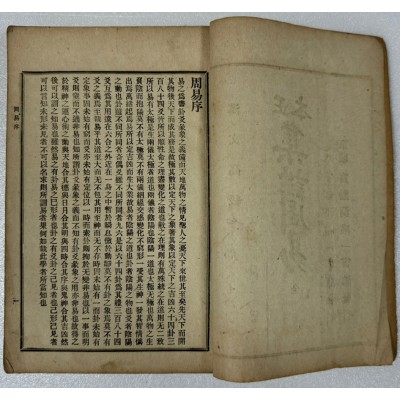 周易序
易之為書卦爻彖象之義備而天地萬物之情見聖人之憂天下來世其至矣先天下而開
其物後天下而成其務是故極其數以定天下之象著其象以定天下之吉凶六十四卦三
百八十四爻皆所以順性命之理盡變化之道也散之在理則有萬殊統之在道則无二致
所以易有太極是生兩儀太極者道也兩儀者陰陽也陰陽一道也太極无極也萬物之生
負陰而抱陽莫不有太極莫不有兩儀絪縕交感變化不窮形一受其生神一發其智情偽
出焉萬緒起焉易所以定吉凶而生大業故易者陰陽之道也卦者陰陽之物也爻者陰陽
之動也卦雖不同所同者奇耦爻雖不同所同者九六是以六十四卦為其體三百八十四
爻互為其用遠在六合之外近在一身之中暫於瞬息微於動靜莫不有卦之象焉莫不有
爻之義焉至哉易乎其道至大而无不包其用至神而无不存時固未始有一而卦未始有
定象事固未始有窮而爻亦未始有定位以一時而索卦則拘於无變非易也以一事而明
爻則窒而不通非易也知所謂卦爻彖象之義而不知有卦爻彖象之用亦非易也故得之
於精神之運心術之動與天地合其德與日月合其明與四時合其序與鬼神合其吉凶然
後可以謂之知易也雖然易之有卦易之已形者也卦之有爻卦之已見者也已形已見者
可以言知未形未見者不可以名求則所謂易者果何如哉此學者所當知也
周易序